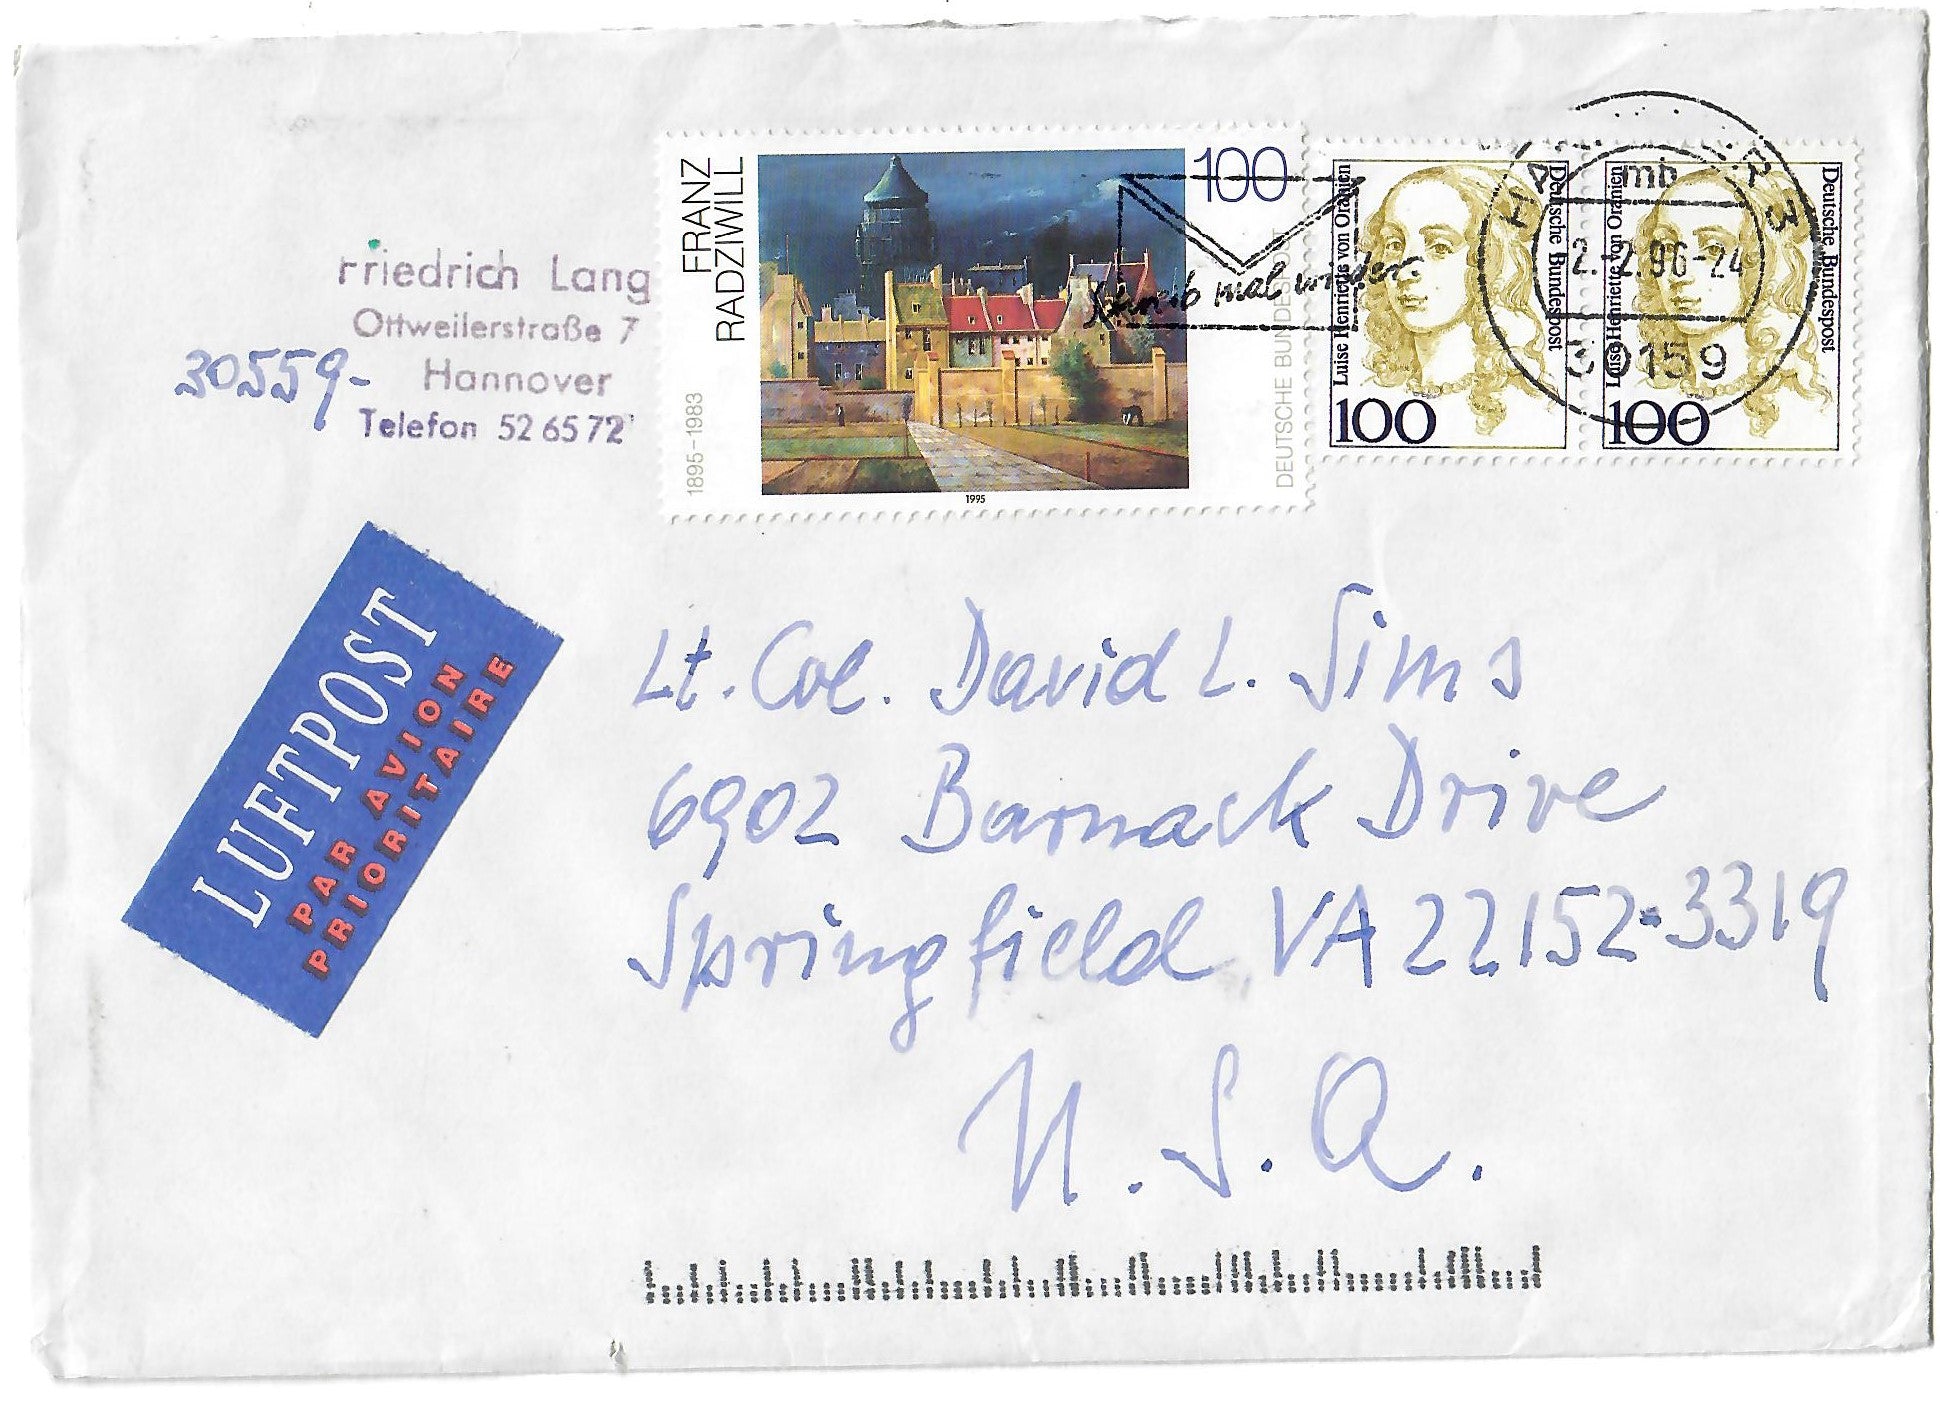 Friedrich Lang
Ottweilerstraße 7
30559- Hannover
Telefon 52 65 72
FRANZ
RADZIWILL
1895–1983
100
DEUTSCHE BUNDESPOST
1995
Schreib mal wieder
Luise Henriette von Oranien
Deutsche Bundespost
100
Luise Henriette von Oranien
Deutsche Bundespost
100
mb
2.-2.96-24
30159
LUFTPOST
PAR AVION
PRIORITAIRE
Lt. Col. David L. Sims
6902 Barnack Drive
Springfield, VA 22152-3319
U.S.A.